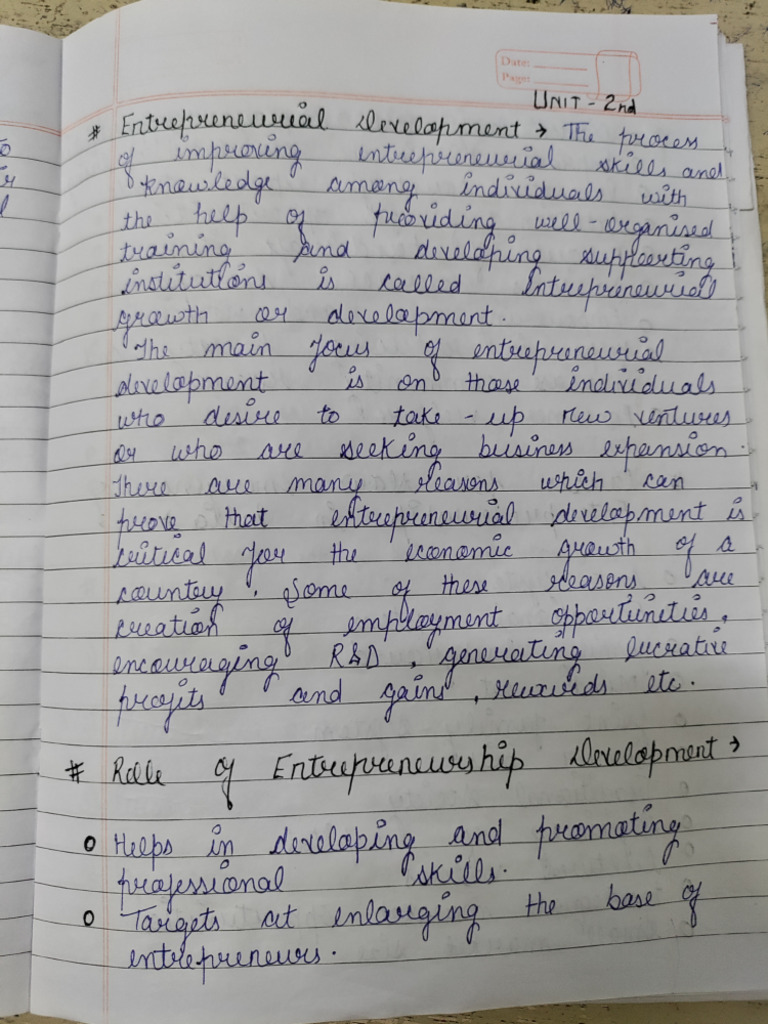 Date:
Page:
UNIT - 2nd
# Entrepreneurial Development → The process
of improving entrepreneurial skills and
knowledge among individuals with
the help of providing well-organised
training and developing supporting
institutions is called entrepreneurial
growth or development.
The main focus of entrepreneurial
development is on those individuals
who desire to take-up new ventures
or who are seeking business expansion.
There are many reasons which can
prove that entrepreneurial development is
critical for the economic growth of a
country. Some of these reasons are
creation of employment opportunities,
encouraging R&D, generating lucrative
profits and gains, rewards etc.
# Role of Entrepreneurship Development →
o Helps in developing and promoting
professional skills.
o Targets at enlarging the base of
entrepreneurs.